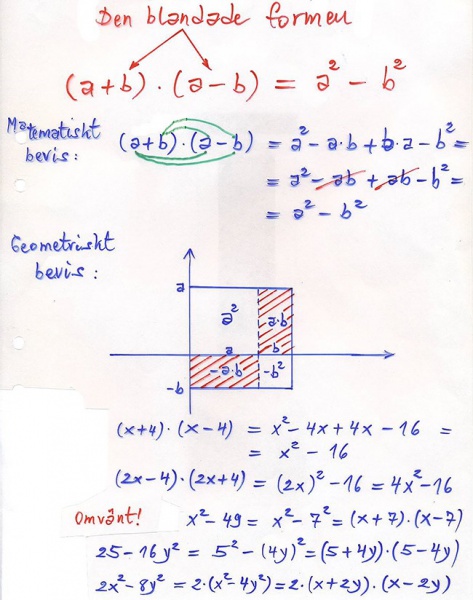 Den blandade formen
(a+b) · (a-b) = a² - b²
Matematiskt bevis:
(a+b)·(a-b) = a² - a·b + b·a - b² =
= a² - ab + ab - b² =
= a² - b²
Geometriskt bevis:
a
a²
a·b
a
b
-a·b
-b²
-b
(x+4)·(x-4) = x² - 4x + 4x - 16 =
= x² - 16
(2x-4)·(2x+4) = (2x)² - 16 = 4x² - 16
Omvänt!
x² - 49 = x² - 7² = (x+7)·(x-7)
25 - 16y² = 5² - (4y)² = (5+4y)·(5-4y)
2x² - 8y² = 2·(x² - 4y²) = 2·(x+2y)·(x-2y)